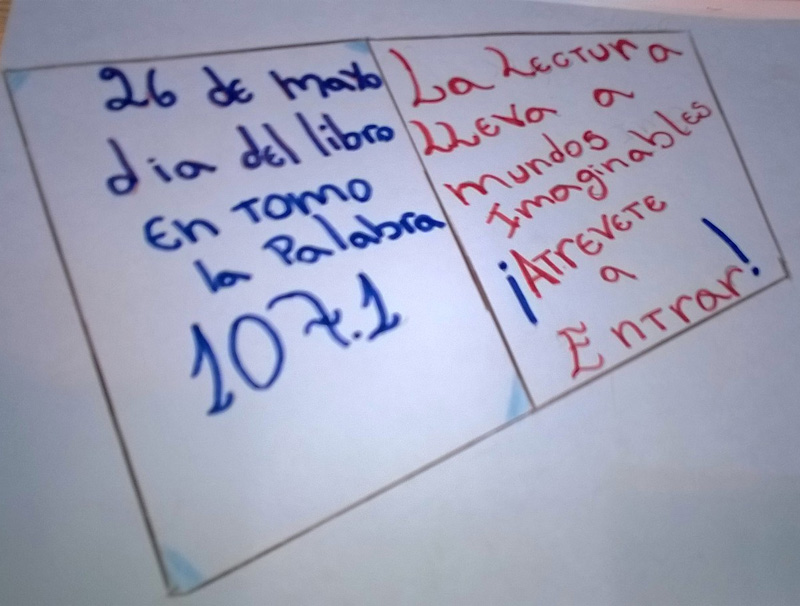 26 de mayo
dia del libro
En Tomo
la Palabra
107.1
La Lectura
LLeva a
mundos
Imaginables
¡Atrevete
a
Entrar!